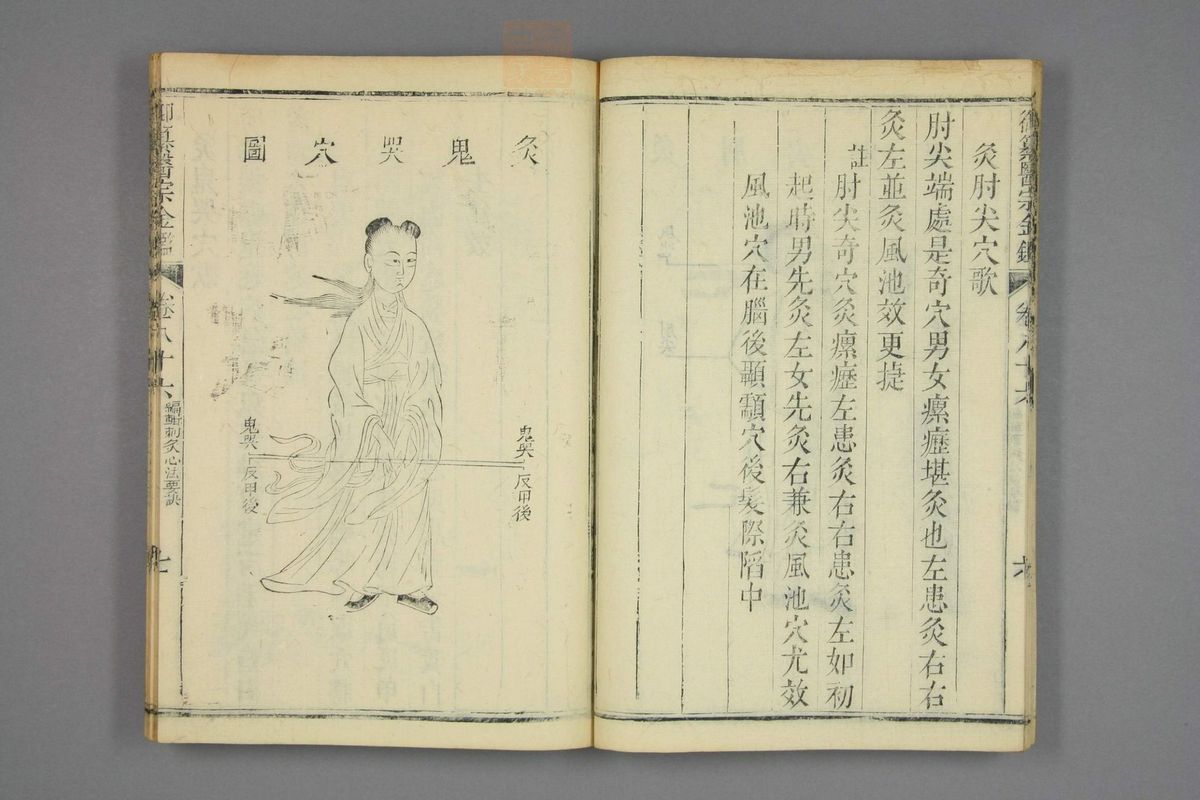 御纂醫宗金鑑
卷八十六
六
灸肘尖穴歌
肘尖端處是奇穴男女瘰癧堪灸也左患灸右右
灸左並灸風池效更捷
註
肘尖奇穴灸瘰癧左患灸右右患灸左如初
起時男先灸左女先灸右兼灸風池穴尤效
風池穴在腦後顳顬穴後髮際陷中
灸鬼哭穴圖
鬼哭
反甲後
鬼哭
反甲後
御纂醫宗金鑑
卷八十六
編輯刺灸心法要訣
七